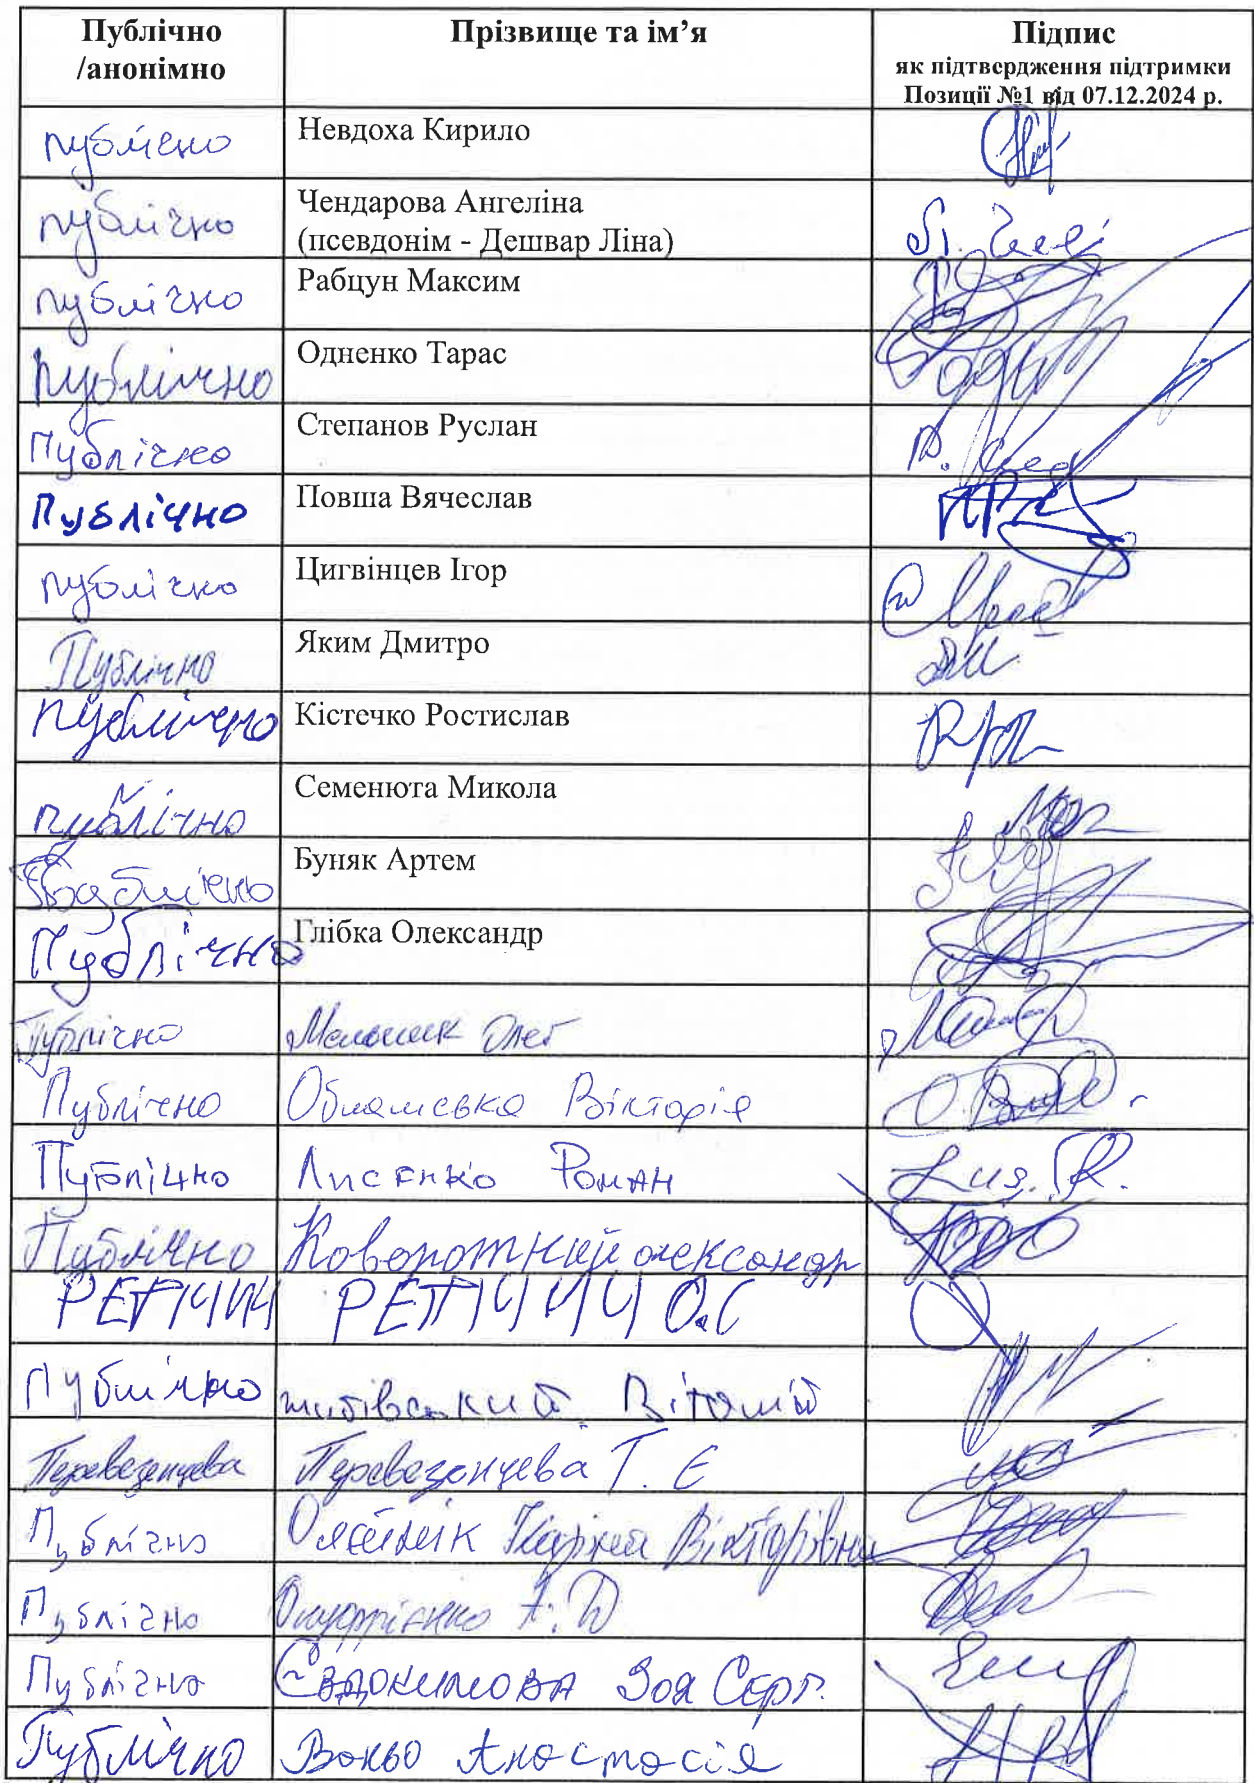 Публічно Прізвище та ім’я Підпис
/анонімно як підтвердження підтримки
Позиції №1 від 07.12.2024 р.
публічно Невдоха Кирило
публічно Чендарова Ангеліна
(псевдонім - Дешвар Ліна)
публічно Рабцун Максим
публічно Одненко Тарас
Публічно Степанов Руслан
Публічно Повша Вячеслав
публічно Цигвінцев Ігор
Публічно Яким Дмитро
публічно Кістечко Ростислав
публічно Семенюта Микола
Буняк Артем
Публічно Глібка Олександр
Публічно Мельник Олег
Публічно Вікторія
Публічно Лисенко Роман
Публічно Коворотний олександр
РЕПІЧИЧ О.С
Публічно Віталій
Перевезенцева Перевезенцева Т. Є
Публічно Олейнік Каріна Вікторівна
Публічно Онуфрієнко А. Д
Публічно Євдокимова Зоя Серг.
Публічно Вокьо Анастасія